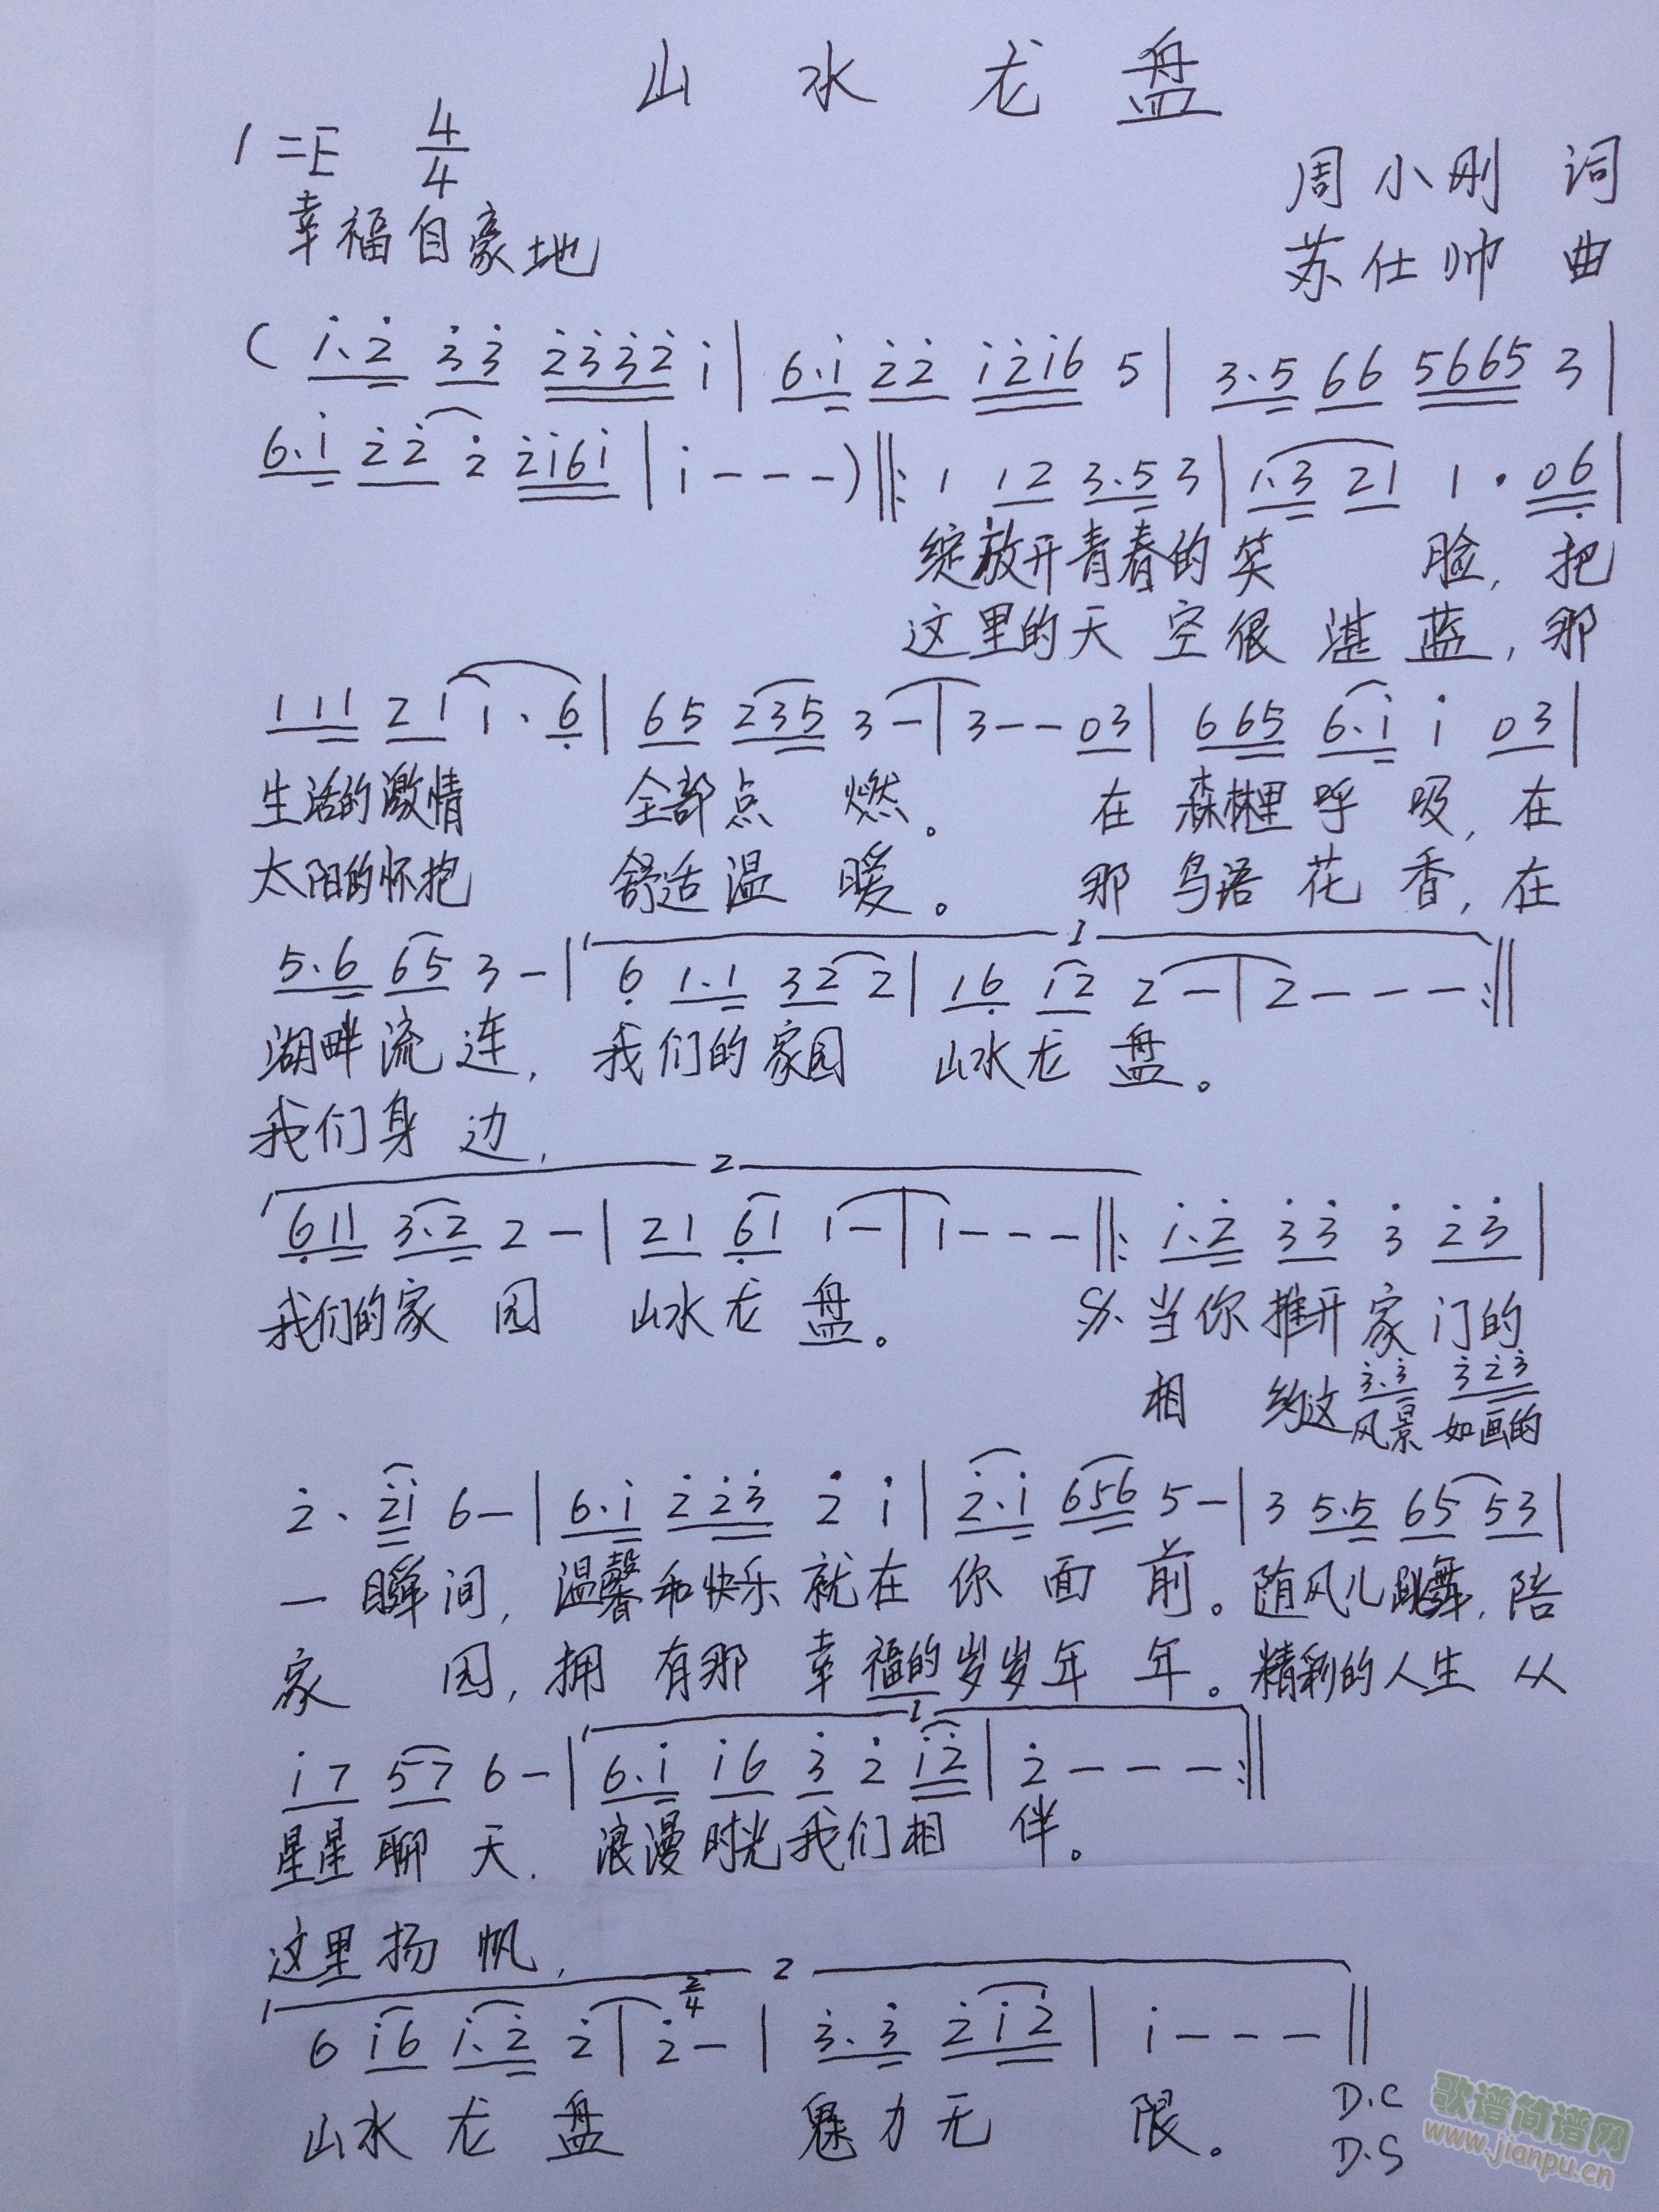 山 水 龙 盘
1=E 4/4
周小刚 词
幸福自豪地
苏仕帅 曲
( i.2 33 2332 i | 6.i 22 i2i6 5 | 3.5 66 5665 3 |
6.i 22 2 2i6i | i - - - ) ‖: 1 12 3.5 3 | 1.3 21 1 . 06 |
绽放开青春的笑 脸, 把
这里的天空很湛蓝, 那
111 21 1 . 6 | 65 235 3 - | 3 - - 03 | 665 6.i i 03 |
生活的激情 全部点燃。 在森林里呼吸, 在
太阳的怀抱 舒适温暖。 那鸟语花香, 在
5.6 65 3 - | 6 1.1 32 2 | 16 12 2 - | 2 - - - :‖
1
湖畔流连, 我们的家园 山水龙盘。
我们身边,
2
611 3.2 2 - | 21 61 1 - | 1 - - - ‖: i.2 33 3 23 |
我们的家园 山水龙盘。 当你推开家门的
3.3 323
相 约这风景如画的
2 . 2i 6 - | 6.i 223 2 i | 2.i 656 5 - | 3 5.5 65 53 |
一瞬间, 温馨和快乐就在你面前。随风儿跳舞, 陪
家 园, 拥有那幸福的岁岁年年。精彩的人生从
1
i7 57 6 - | 6.i i6 3 2 i2 | 2 - - - :‖
星星聊天. 浪漫时光我们相伴。
这里扬帆,
2
6 i6 i.2 2 | 2/4 2 - | 3.3 2i2 | i - - - ‖
山水龙盘 魅力无限。 D.C
D.S
歌谱简谱网
www.jianpu.cn